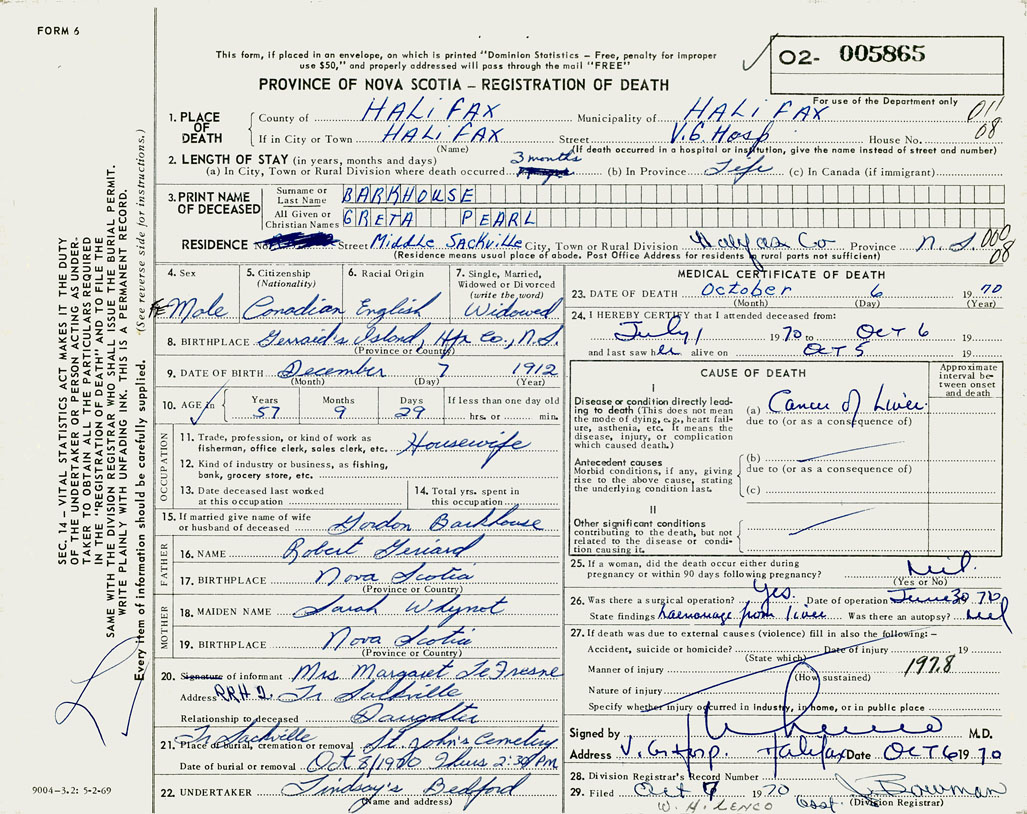 FORM 6
This form, if placed in an envelope, on which is printed "Dominion Statistics – Free, penalty for improper
use $50," and properly addressed will pass through the mail "FREE"
O2- 005865
PROVINCE OF NOVA SCOTIA – REGISTRATION OF DEATH
For use of the Department only
1. PLACE OF DEATH
County of HALIFAX Municipality of HALIFAX 011
If in City or Town HALIFAX Street V.G. Hosp House No. 08
(Name) (If death occurred in a hospital or institution, give the name instead of street and number)
2. LENGTH OF STAY (in years, months and days)
(a) In City, Town or Rural Division where death occurred 3 months (b) In Province Life (c) In Canada (if immigrant)
3. PRINT NAME OF DECEASED
Surname or Last Name BARKHOUSE
All Given or Christian Names GRETA PEARL
RESIDENCE No. Street Middle Sackville City, Town or Rural Division Halifax Co Province N.S. 000
(Residence means usual place of abode. Post Office Address for residents in rural parts not sufficient) 08
4. Sex FeMale
5. Citizenship (Nationality) Canadian
6. Racial Origin English
7. Single, Married, Widowed or Divorced (write the word) Widowed
8. BIRTHPLACE Gerrard's Island, Hfx Co., N.S.
(Province or Country)
9. DATE OF BIRTH December 7 1912
(Month) (Day) (Year)
10. AGE in Years 57 Months 9 Days 29 If less than one day old hrs. or min.
OCCUPATION
11. Trade, profession, or kind of work as fisherman, office clerk, sales clerk, etc. Housewife
12. Kind of industry or business, as fishing, bank, grocery store, etc.
13. Date deceased last worked at this occupation
14. Total yrs. spent in this occupation
15. If married give name of wife or husband of deceased Gordon Barkhouse
FATHER
16. NAME Robert Gerrard
17. BIRTHPLACE Nova Scotia
(Province or Country)
MOTHER
18. MAIDEN NAME Sarah Whynot
19. BIRTHPLACE Nova Scotia
(Province or Country)
20. Signature of informant Mrs Margaret LeFresne
Address RR# 2. Sackville
Relationship to deceased Daughter
Sackville
21. Place of burial, cremation or removal St. John's Cemetery
Date of burial or removal Oct 8/1970 Thurs 2:30 PM
22. UNDERTAKER Lindsay's Bedford
(Name and address)
MEDICAL CERTIFICATE OF DEATH
23. DATE OF DEATH October 6 1970
(Month) (Day) (Year)
24. I HEREBY CERTIFY that I attended deceased from:
July 1 1970 to Oct 6 19
and last saw her alive on Oct 5 19
CAUSE OF DEATH
Approximate interval between onset and death
I
Disease or condition directly leading to death (This does not mean the mode of dying, e.g., heart failure, asthenia, etc. It means the disease, injury, or complication which caused death.)
(a) Cancer of Liver
due to (or as a consequence of)
Antecedent causes
Morbid conditions, if any, giving rise to the above cause, stating the underlying condition last.
(b)
due to (or as a consequence of)
(c)
II
Other significant conditions contributing to the death, but not related to the disease or condition causing it.
25. If a woman, did the death occur either during pregnancy or within 90 days following pregnancy? Nil
(Yes or No)
26. Was there a surgical operation? Yes. Date of operation June 30 1970
State findings haemorrage from liver Was there an autopsy? Nil
27. If death was due to external causes (violence) fill in also the following: –
Accident, suicide or homicide? Date of injury 19
(State which)
Manner of injury 197.8
(How sustained)
Nature of injury
Specify whether injury occurred in industry, in home, or in public place
Signed by M.D.
Address V.G. Hosp. Halifax Date Oct 6 1970
28. Division Registrar's Record Number
29. Filed Oct 7 1970 Bowman
W. H. LENCO (Division Registrar)
SEC. 14 – VITAL STATISTICS ACT MAKES IT THE DUTY
OF THE UNDERTAKER OR PERSON ACTING AS UNDER-
TAKER TO OBTAIN ALL THE PARTICULARS REQUIRED
IN THE "REGISTRATION OF DEATH" AND TO FILE THE
SAME WITH THE DIVISION REGISTRAR WHO SHALL ISSUE THE BURIAL PERMIT.
WRITE PLAINLY WITH UNFADING INK. THIS IS A PERMANENT RECORD.
Every item of information should be carefully supplied. (See reverse side for instructions.)
9004-3.2: 5-2-69